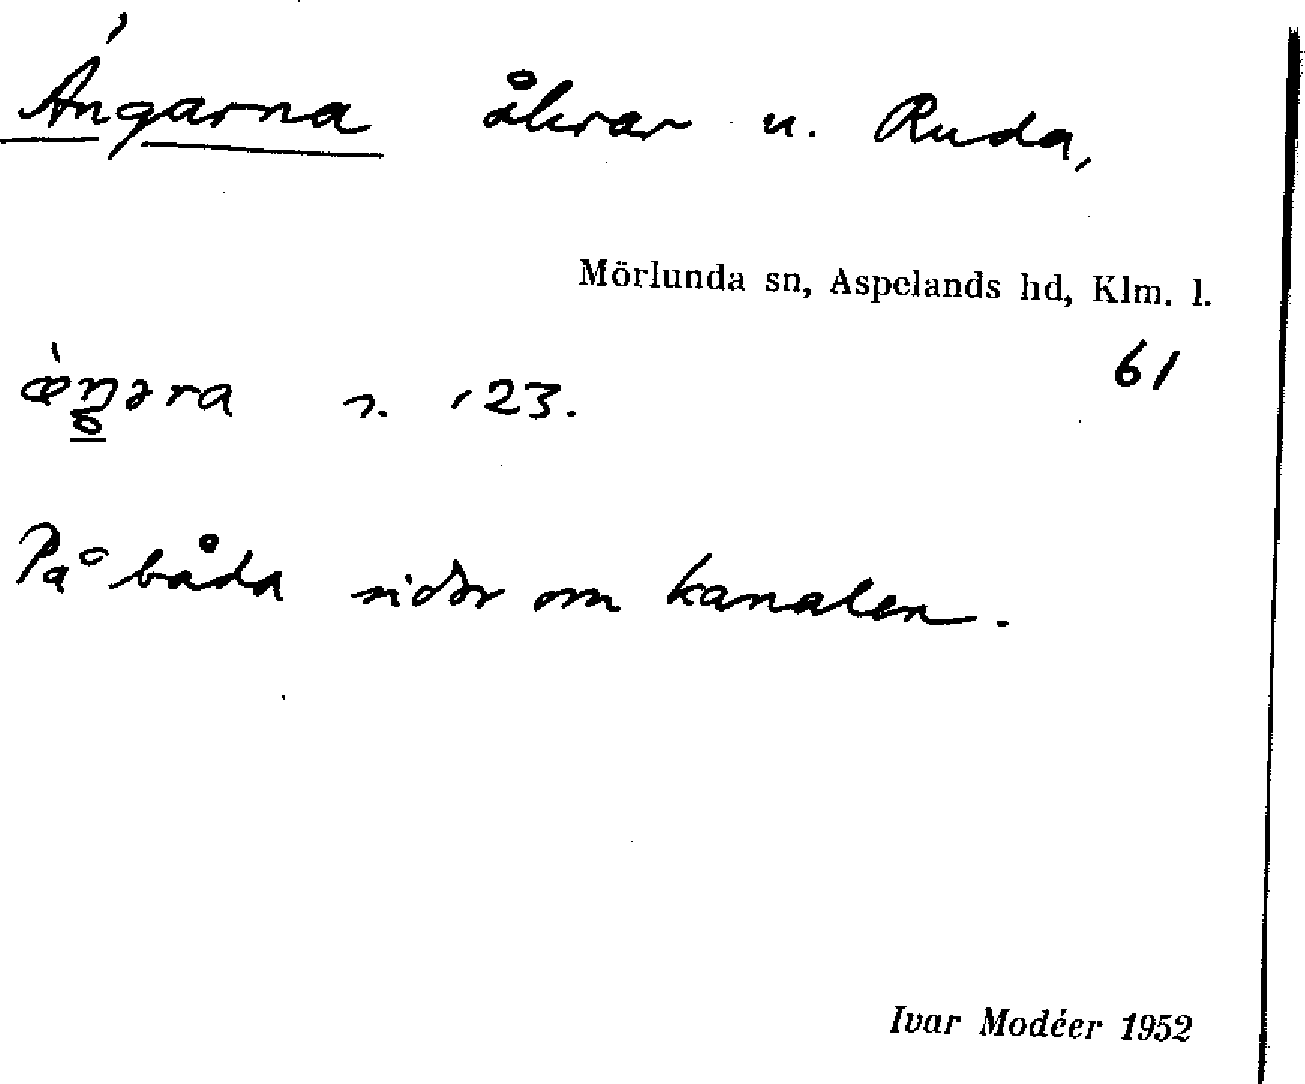 Ängarna åkrar u. Ruda,
Mörlunda sn, Aspelands hd, Klm. l.
61
123.
På båda sidor om kanalen.
Ivar Modéer 1952